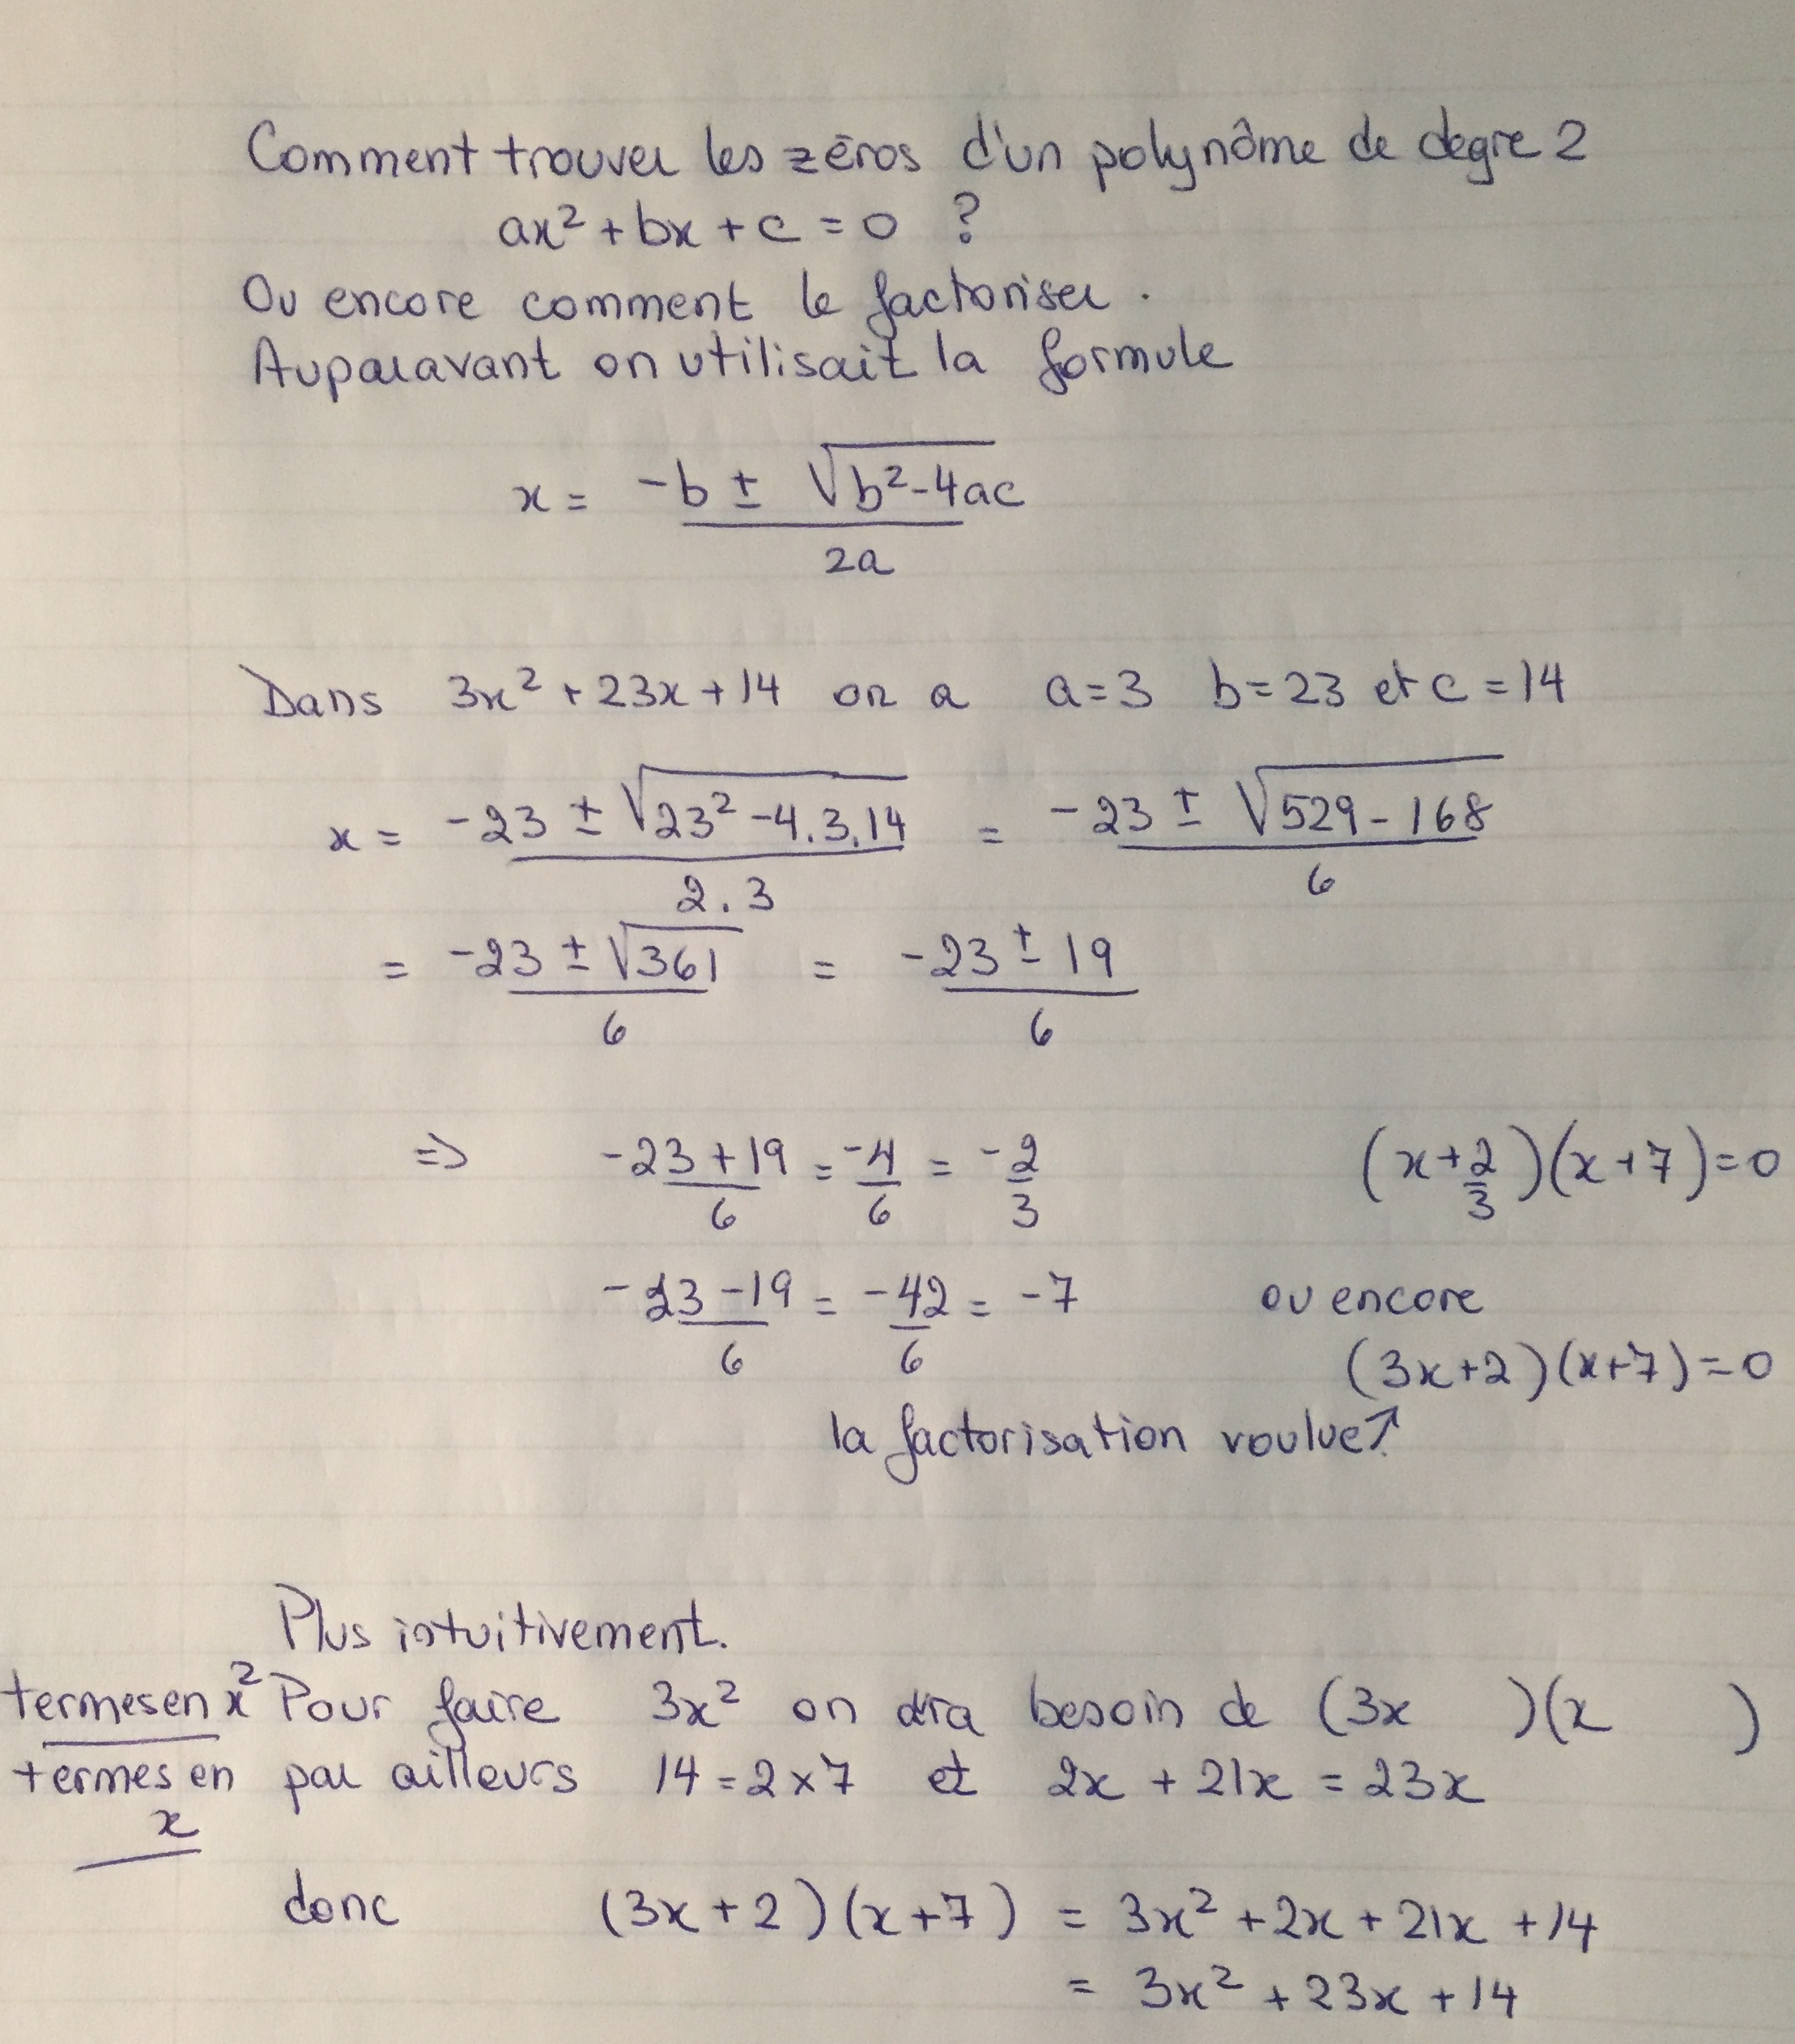 Comment trouver les zéros d'un polynôme de degre 2
ax² + bx + c = 0 ?
Ou encore comment le factoriser.
Auparavant on utilisait la formule
x = (-b ± √(b²-4ac)) / 2a
Dans 3x² + 23x + 14 on a a=3 b=23 et c=14
x = (-23 ± √(23²-4.3.14)) / 2.3 = (-23 ± √(529-168)) / 6
= (-23 ± √361) / 6 = (-23 ± 19) / 6
=> (-23+19)/6 = -4/6 = -2/3 (x+2/3)(x+7)=0
(-23-19)/6 = -42/6 = -7 ou encore
(3x+2)(x+7)=0
la factorisation voulue↑
Plus intuitivement.
termes en x² Pour faire 3x² on besoin de (3x )(x )
termes en x par ailleurs 14=2x7 et 2x + 21x = 23x
donc (3x+2)(x+7) = 3x² + 2x + 21x + 14
= 3x² + 23x + 14